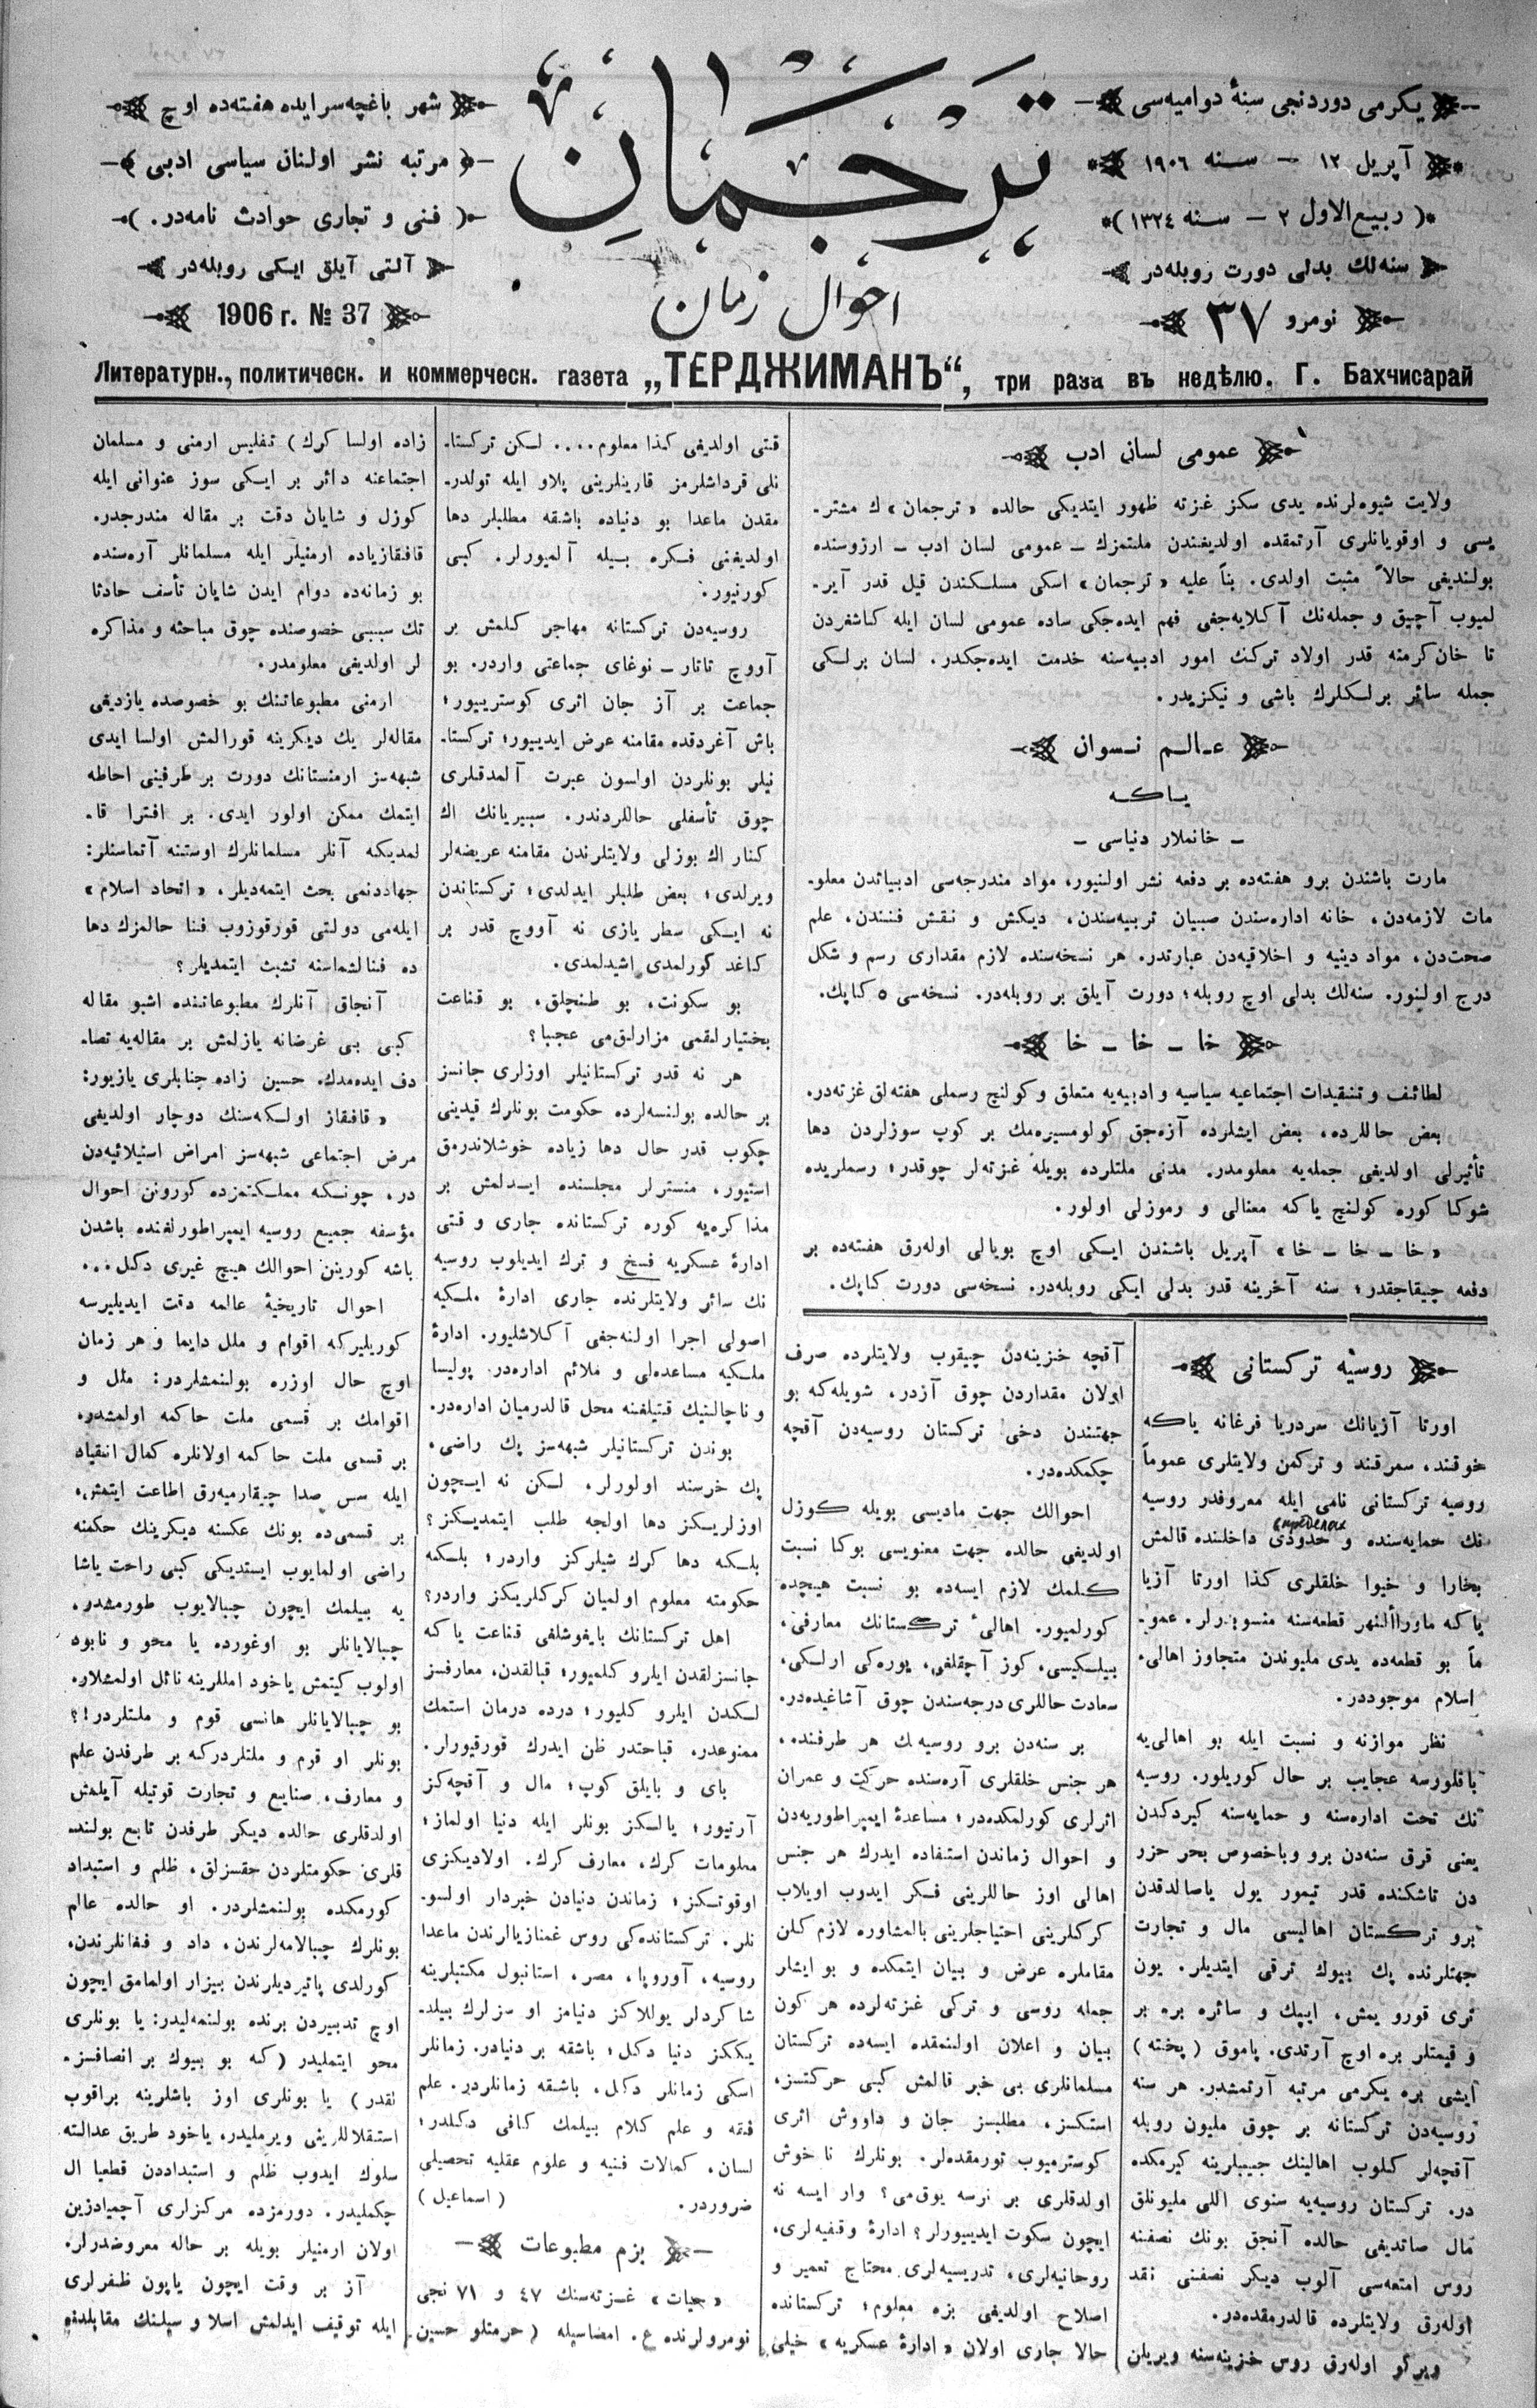 یکرمی دوردنجی سنهٔ دوامیه‌سی
آپریل ١٢ – سنه ١٩٠٦
( ربیع‌الاول ٢ – سنه ١٣٢٤ )
سنه‌لك بدلی دورت روبله‌در
نومرو ٣٧
ترجمان
احوال زمان
شهر باغچه‌سرایده هفته‌ده اوچ
مرتبه نشر اولنان سیاسی ادبی
( فنی و تجاری حوادث نامه‌در. )
آلتی آیلق ایکی روبله‌در
1906 г. № 37
Литературн., политическ. и коммерческ. газета „ТЕРДЖИМАНЪ“, три раза въ недѣлю. Г. Бахчисарай
عمومی لسان ادب
ولایت شیوه‌لرنده یدی سکز غزته ظهور ایتدیکی حالده «ترجمان»ك مشتر-
یسی و اوقویانلری آرتمقده اولدیغندن ملتمزك – عمومی لسان ادب – ارزوسنده
بولندیغی حالاً مثبت اولدی. بناً علیه «ترجمان» اسکی مسلکندن قیل قدر آیر-
لمیوب آچیق و جمله‌نك آکلایه‌جغی فهم ایده‌جکی ساده عمومی لسان ایله کاشغردن
تا خان‌کرمنه قدر اولاد ترکك امور ادبیه‌سنه خدمت ایده‌جکدر. لسان برلکی
جمله سائر برلکلرك باشی و نیکزیدر.
عالم نسوان
یاکه
– خانملار دنیاسی –
مارت باشندن برو هفته‌ده بر دفعه نشر اولنیور، مواد مندرجه‌سی ادبیاتدن معلو-
مات لازمه‌دن، خانه اداره‌سندن صبیان تربیه‌سندن، دیکش و نقش فنندن، علم
صحت‌دن، مواد دینیه و اخلاقیه‌دن عبارتدر. هر نسخه‌سنده لازم مقداری رسم و شکل
درج اولینور. سنه‌لك بدلی اوچ روبله؛ دورت آیلق بر روبله‌در. نسخه‌سی ٥ کاپك.
خا – خا – خا
لطائف و تنقیدات اجتماعیه سیاسیه و ادبیه‌یه متعلق و کولنچ رسملی هفته‌لق غزته‌در.
بعض حاللرده، بعض ایشلرده آزه‌جق کولومسیره‌مك بر کوپ سوزلردن دها
تأثیرلی اولدیغی جمله‌یه معلومدر. مدنی ملتلرده بویله غزته‌لر چوقدر؛ رسملریده
شوکا کوره کولنچ یاکه معنالی و رموزلی اولور.
«خا – خا – خا» آپریل باشندن ایکی اوچ بویالی اوله‌رق هفته‌ده بر
دفعه چیقاجقدر؛ سنه آخرینه قدر بدلی ایکی روبله‌در. نسخه‌سی دورت کاپك.
روسیه ترکستانی
اورتا آزیانك سردریا فرغانه یاکه
خوقند، سمرقند و ترکمن ولایتلری عموماً
روسیه ترکستانی نامی ایله معروفدر روسیه
نك حمایه‌سنده و حدودی داخلنده قالمش
بخارا و خیوا خلقلری کذا اورتا آزیا
یاکه ماورأالنهر قطعه‌سنه منسوبدرلر. عمو-
ماً بو قطعه‌ده یدی ملیوندن متجاوز اهالی
اسلام موجوددر.
نظر موازنه و نسبت ایله بو اهالی‌یه
باقلورسه عجایب بر حال کوریلور. روسیه
نك تحت اداره‌سنه و حمایه‌سنه کیردکدن
یعنی قرق سنه‌دن برو وباخصوص بحر خزر
دن تاشکنده قدر تیمور یول یاصالدقدن
برو ترکستان اهالیسی مال و تجارت
جهتلرنده پك بیوك ترقی ایتدیلر. یون
تری قورو یمش، ایپك و سائره بره بر
و قیمتلر بره اوچ آرتدی. پاموق (پخته)
ایشی بره یکرمی مرتبه آرتمشدر. هر سنه
روسیه‌دن ترکستانه بر چوق ملیون روبله
آقچه‌لر کلوب اهالینك جیبلرینه کیرمکده
در. ترکستان روسیه‌یه سنوی اللی ملیونلق
مال صاتدیغی حالده آنجق بونك نصفنه
روس امتعه‌سی آلوب دیکر نصفنی نقد
اوله‌رق ولایتلرده قالدرمقده‌در.
ویرگو اوله‌رق روس خزینه‌سنه ویریلن
آقچه خزینه‌دن چیقوب ولایتلرده صرف
اولان مقداردن چوق آزدر، شویله‌که بو
جهتندن دخی ترکستان روسیه‌دن آقچه
چکمکده‌در.
احوالك جهت مادیسی بویله کوزل
اولدیغی حالده جهت معنویسی بوکا نسبت
کلمك لازم ایسه‌ده بو نسبت هیچده
کورلمیور. اهالیٔ ترکستانك معارفی،
بیلکیسی، کوز آچقلغی، یوره‌کی ارلکی،
سعادت حاللری درجه‌سندن چوق آشاغیده‌در.
بر سنه‌دن برو روسیه‌نك هر طرفنده،
هر جنس خلقلری آره‌سنده حرکت و عمران
اثرلری کورلمکده‌در؛ مساعدهٔ ایمپراطوریه‌دن
و احوال زماندن استفاده ایدرك هر جنس
اهالی اوز حاللرینی فکر ایدوب اویلاب
کرکلرینی احتیاجلرینی بالمشاوره لازم کلن
مقاملره عرض و بیان ایتمکده و بو ایشلر
جمله روسی و ترکی غزته‌لرده هر کون
بیان و اعلان اولنمقده ایسه‌ده ترکستان
مسلمانلری بی خبر قالمش کبی حرکتسز،
استکسز، مطلبسز جان و داووش اثری
کوسترمیوب تورمقده‌لر. بونلرك ناخوش
اولدقلری بر نرسه یوق‌می؟ وار ایسه نه
ایچون سکوت ایدییورلر؟ ادارهٔ وقفیه‌لری،
روحانیه‌لری، تدریسیه‌لری محتاج تعمیر و
اصلاح اولدیغی بزه معلوم؛ ترکستانده
حالا جاری اولان «ادارهٔ عسکریه» خیلی
قتی اولدیغی کذا معلوم.... لکن ترکستا-
نلی قرداشلرمز قارینلرینی پلاو ایله تولدر-
مقدن ماعدا بو دنیاده باشقه مطلبلر دها
اولدیغنی فکره بیله آلمیورلر. کبی
کورنیور.
روسیه‌دن ترکستانه مهاجر کلمش بر
آووچ تاتار – نوغای جماعتی واردر. بو
جماعت بر آز جان اثری کوستریبور؛
باش آغردقده مقامنه عرض ایدییور؛ ترکستا-
نیلر بونلردن اولسون عبرت آلمدقبلری
چوق تأسفلی حاللردندر. سیبریانك اك
کنار اك بوزلی ولایتلرندن مقامنه عریضه‌لر
ویرلدی؛ بعض طلبلر ایدلدی؛ ترکستاندن
نه ایکی سطر یازی نه آووچ قدر بر
کاغد کورلمدی اشیدلمدی.
بو سکونت، بو طنچلق، بو قناعت
بختیارلقمی مزارلق‌می عجبا؟
هر نه قدر ترکستانیلر اوزلری جانسز
بر حالده بولنسه‌لرده حکومت بونلرك قیدینی
چکوب قدر حال دها زیاده خوشلاندرمق
استیور، منسترلر مجلسنده ایدلمش بر
مذاکره‌یه کوره ترکستانده جاری و قتی
ادارهٔ عسکریه فسخ و ترك ایدیلوب روسیه
نك سائر ولایتلرنده جاری ادارهٔ ملکیه
اصولی اجرا اولنه‌جغی آکلاشلیور. ادارهٔ
ملکیه مساعده‌لی و ملائم اداره‌در. پولیسا
و ناچالنیك قتیلغنه محل قالدرمیان اداره‌در.
بوندن ترکستانیلر شبهه‌سز پك راضی،
پك خرسند اولورلر. لکن نه ایچون
اوزلریکز دها اولجه طلب ایتمدیکز؟
بلکه دها کرك شیلرکز واردر؛ بلکه
حکومته معلوم اولمیان کرکلریکز واردر؟
اهل ترکستانك بایغوشلغی قناعت یاکه
جانسزلقدن ایلرو کلمیور؛ قبالقدن، معارفسز
لکدن ایلرو کلیور؛ درده درمان استمك
ممنوعدر، قباحتدر ظن ایدرك قورقیورلر.
بای و بایلق کوپ؛ مال و آقچه‌کز
آرتیور؛ یالکز بونلر ایله دنیا اولماز؛
معلومات کرك، معارف کرك. اولادیکزی
اوقوتکز؛ زماندن دنیادن خبردار اولسو-
نلر. ترکستانده‌کی روس غمنازیالرندن ماعدا
روسیه، آوروپا، مصر، استانبول مکتبلرینه
شاکردلر یوللاکز دنیامز او سزلرك بیلد-
یککز دنیا دکل؛ باشقه بر دنیادر. زمانلر
اسکی زمانلر دکل، باشقه زمانلردر. علم
فقه و علم کلام بیلمك کافی دکلدر؛
لسان، کمالات فنیه و علوم عقلیه تحصیلی
ضروردر. (اسماعیل)
بزم مطبوعات
«حیات» غزته‌سنك ٤٧ و ٧١ نجی
نومرولرنده ع. امضاسیله (حرمتلو حسین
زاده اولسا کرك) تفلیس ارمنی و مسلمان
اجتماعنه دائر بر ایکی سوز عنوانی ایله
کوزل و شایان دقت بر مقاله مندرجدر.
قافقازیاده ارمنیلر ایله مسلمانلر آره‌سنده
بو زمانه‌ده دوام ایدن شایان تأسف حادثا
تك سببی خصوصنده چوق مباحثه و مذاکره
لر اولدیغی معلومدر.
ارمنی مطبوعاتنك بو خصوصده یازدیغی
مقاله‌لر یك دیکرینه قورالمش اولسا ایدی
شبهه‌سز ارمنستانك دورت بر طرفینی احاطه
ایتمك ممکن اولور ایدی. بر افترا قا-
لمدیکه آنلر مسلمانلرك اوستنه آتماسنلر:
جهاددنمی بحث ایتمه‌دیلر، «اتحاد اسلام»
ایله‌می دولتی قورقوزوب فنا حالمزك دها
ده فنالشماسنه تشبث ایتمدیلر؟
آنجاق آنلرك مطبوعاتنده اشبو مقاله
کبی بی غرضانه یازلمش بر مقاله‌یه تصا-
دف ایده‌مدك. حسین زاده جنابلری یازیور:
«قافقاز اولکه‌سنك دوچار اولدیغی
مرض اجتماعی شبهه‌سز امراض استیلائیه‌دن
در، چونکه مملکتمزده کورونن احوال
مؤسفه جمیع روسیه ایمپراطورلغنده باشدن
باشه کورینن احوالك هیچ غیری دکل...
احوال تاریخیهٔ عالمه دقت ایدیلیرسه
کوریلیرکه اقوام و ملل دایما و هر زمان
اوچ حال اوزره بولنمشلردر: ملل و
اقوامك بر قسمی ملت حاکمه اولمشدر،
بر قسمی ملت حاکمه اولانلره کمال انقیاد
ایله سس صدا چیقارمیه‌رق اطاعت ایتمش،
بر قسمی‌ده بونك عکسنه دیکرینك حکمنه
راضی اولمایوب ایستدیکی کبی راحت یاشا
یه بیلمك ایچون چبالایوب طورمشدر.
چبالایانلر بو اوغورده یا محو و نابود
اولوب کیتمش یاخود امللرینه نائل اولمشلار.
بو چبالایانلر هانسی قوم و ملتلردر!؟
بونلر او قوم و ملتلردرکه بر طرفدن علم
و معارف، صنایع و تجارت قوتیله آیلمش
اولدقلری حالده دیکر طرفدن تابع بولند-
قلری حکومتلردن حقسزلق، ظلم و استبداد
کورمکده بولنمشلردر. او حالده عالم
بونلرك چبالامه‌لرندن، داد و فغانلرندن،
کورلدی پاتیردیلرندن بیزار اولمامق ایچون
اوچ تدبیردن برنده بولنمه‌لیدر: یا بونلری
محو ایتملیدر (که بو بیوك بر انصافسز-
لقدر) یا بونلری اوز باشلرینه براقوب
استقلاللرینی ویرملیدر، یاخود طریق عدالته
سلوك ایدوب ظلم و استبداددن قطعیا ال
چکملیدر. دورمزده مرکزلری آچمیادزین
اولان ارمنیلر بویله بر حاله معروضدرلر.
آز بر وقت ایچون یاپون ظفرلری
ایله توقیف ایدلمش اسلاوسیلنك مقابلنده